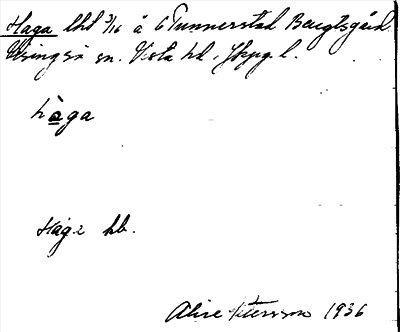 Haga lht 3/16 å 6 Tunnerstad Bengtsgård
Visingsö sn. Vista hd, Jkpg. l.
hàga
Haga hb.
Alice Petersson 1936